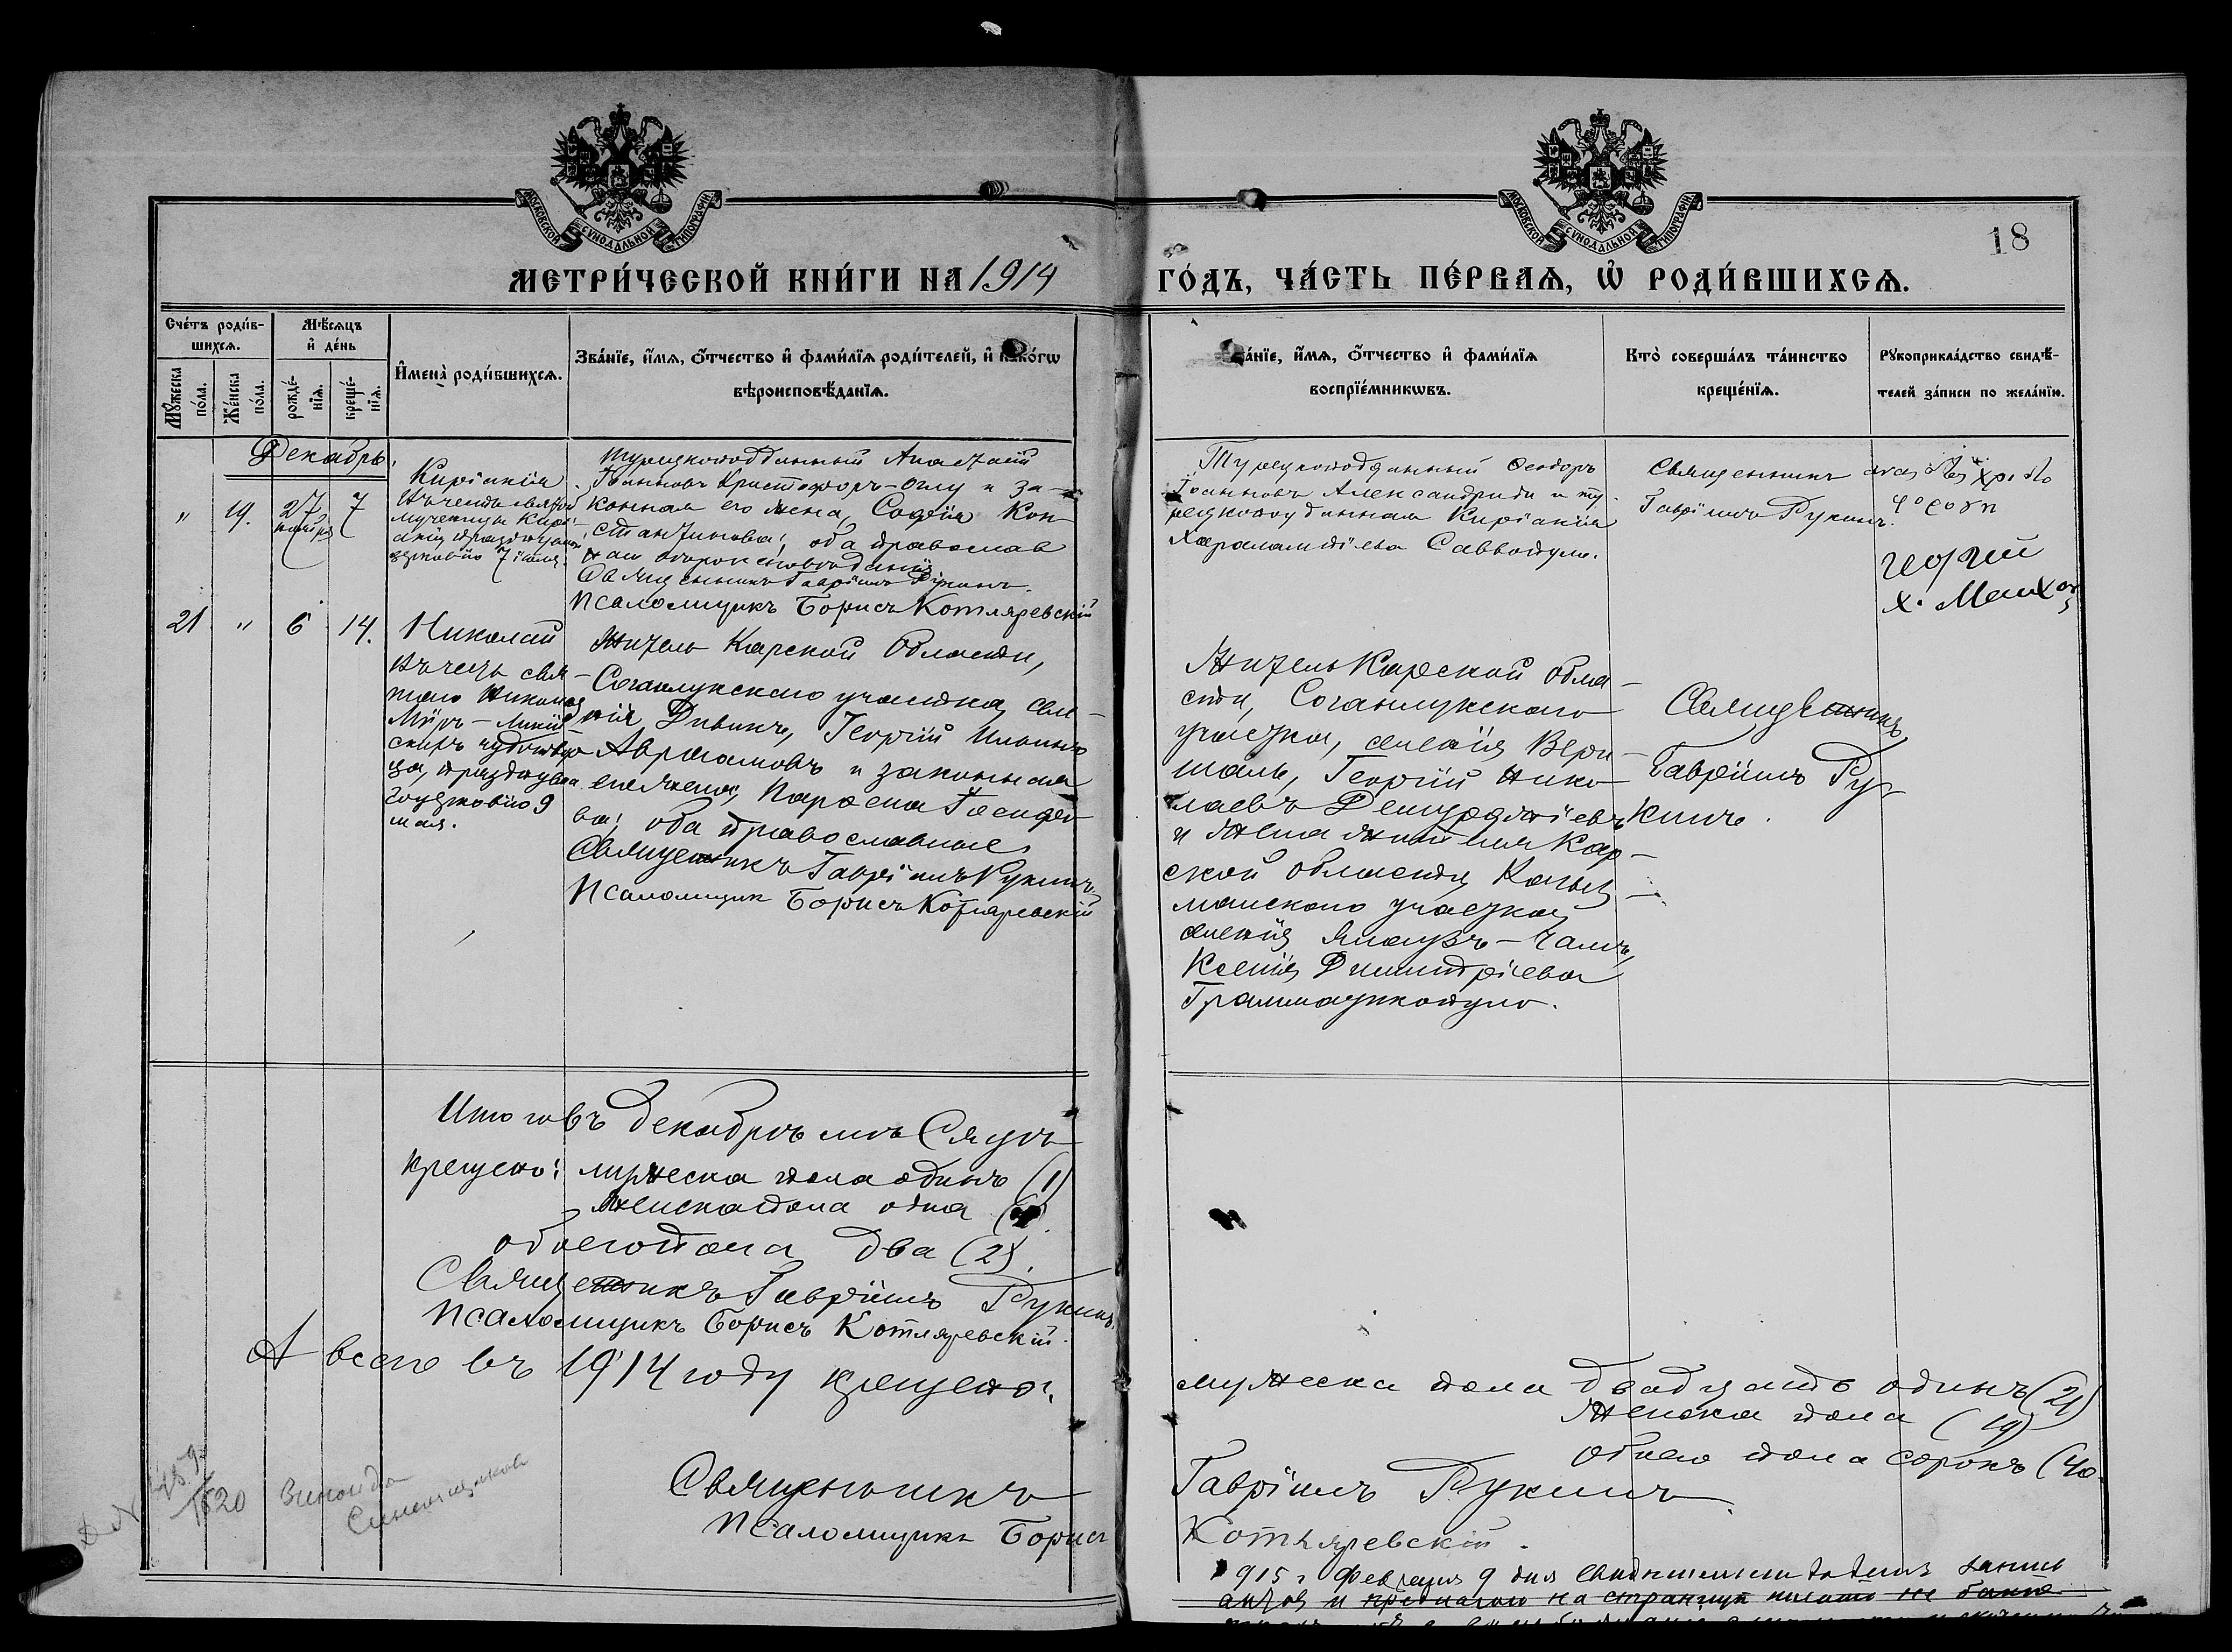 МОСКОВСКОЙ СѴНОДАЛЬНОЙ ТИПОГРАФІИ
МОСКОВСКОЙ СѴНОДАЛЬНОЙ ТИПОГРАФІИ
18
МЕТРИ́ЧЕСКОЙ КНИ́ГИ НА 1914
ГО́ДЪ, ЧА́СТЬ ПЕ́РВАѦ, Ѡ҆ РОДИ́ВШИХСѦ.
Сче́тъ роди́в-
шихсѧ.
Мѣ́сѧцъ
и҆ де́нь
Мꙋ́жеска
по́ла.
Же́нска
по́ла.
рожде́-
нїѧ.
креще́-
нїѧ.
И҆мена̀ роди́вшихсѧ.
Зва́нїе, и҆́мѧ, ѻ҆́тчество и҆ фами́лїѧ роди́телей, и҆
вѣроисповѣ́данїѧ.
и҆́мѧ, ѻ҆́тчество и҆ фами́лїѧ
воспрїе́мникѡвъ.
Кто̀ соверша́лъ та́инство
креще́нїѧ.
Рꙋкоприкла́дство свидѣ́-
телей за́писи по жела́нїю.
Декабрь.
"
19.
27
ноября
7
Киріакія
Въ честь святой
мученицы Кирі-
акіи празднуемой
церковію 7 іюля.
Турецкоподданный Анастасій
Іоанновъ Христофоръ-оглу и за-
конная его жена, Софія Кон-
стантинова; оба православ
наго вѣроисповѣданія
Священникъ Гавріилъ Рукинъ.
Псаломщикъ Борисъ Котляревскій
Турецкоподданный Ѳеодоръ
Іоанновъ Александриди и ту-
рецкоподданная Киріакія
Харалампіева Саввопуло.
Священникъ
Гавріилъ Рукинъ.
Георгій
21
"
6
14.
Николай
Въ честь свя-
таго Николая
Мѵръ-Ликій
скихъ чудотвор
ца, празднуема
го церковію 9
мая.
Житель Карской Области,
Соганлукскаго участка, селе-
нія Дивикъ, Георгій Ильинъ
Авраамовъ и законная
его жена, Парѳена
ва; оба православные
Священникъ Гавріилъ Рукинъ
Псаломщик Борисъ Котляревскій
Житель Карской обла-
сти, Соганлукскаго
участка, селенія Вери-
шанъ, Георгій Нико-
лаевъ Демурджіевъ
и жена жителя Кар-
ской области Кагыз-
манскаго участка,
селенія Ялаузъ-Чамъ,
Ксенія Димитріева
Грамматикопуло.
Священникъ
Гавріилъ Ру-
кинъ.
Итого въ декабрѣ мѣсяцѣ
крещено: мужеска пола одинъ (1)
женска пола одна
обоего пола два (2).
Священникъ Гавріилъ Рукинъ.
Псаломщикъ Борисъ Котляревскій.
А всего въ 1914 году крещено:
мужеска пола двадцать одинъ (21)
женска пола (19)
обоего пола сорокъ (40
Священникъ
Гавріилъ Рукинъ.
Псаломщикъ Борисъ
Котляревскій.
1520
1915 г. Февраля 9 дня
актов и на страницѣ